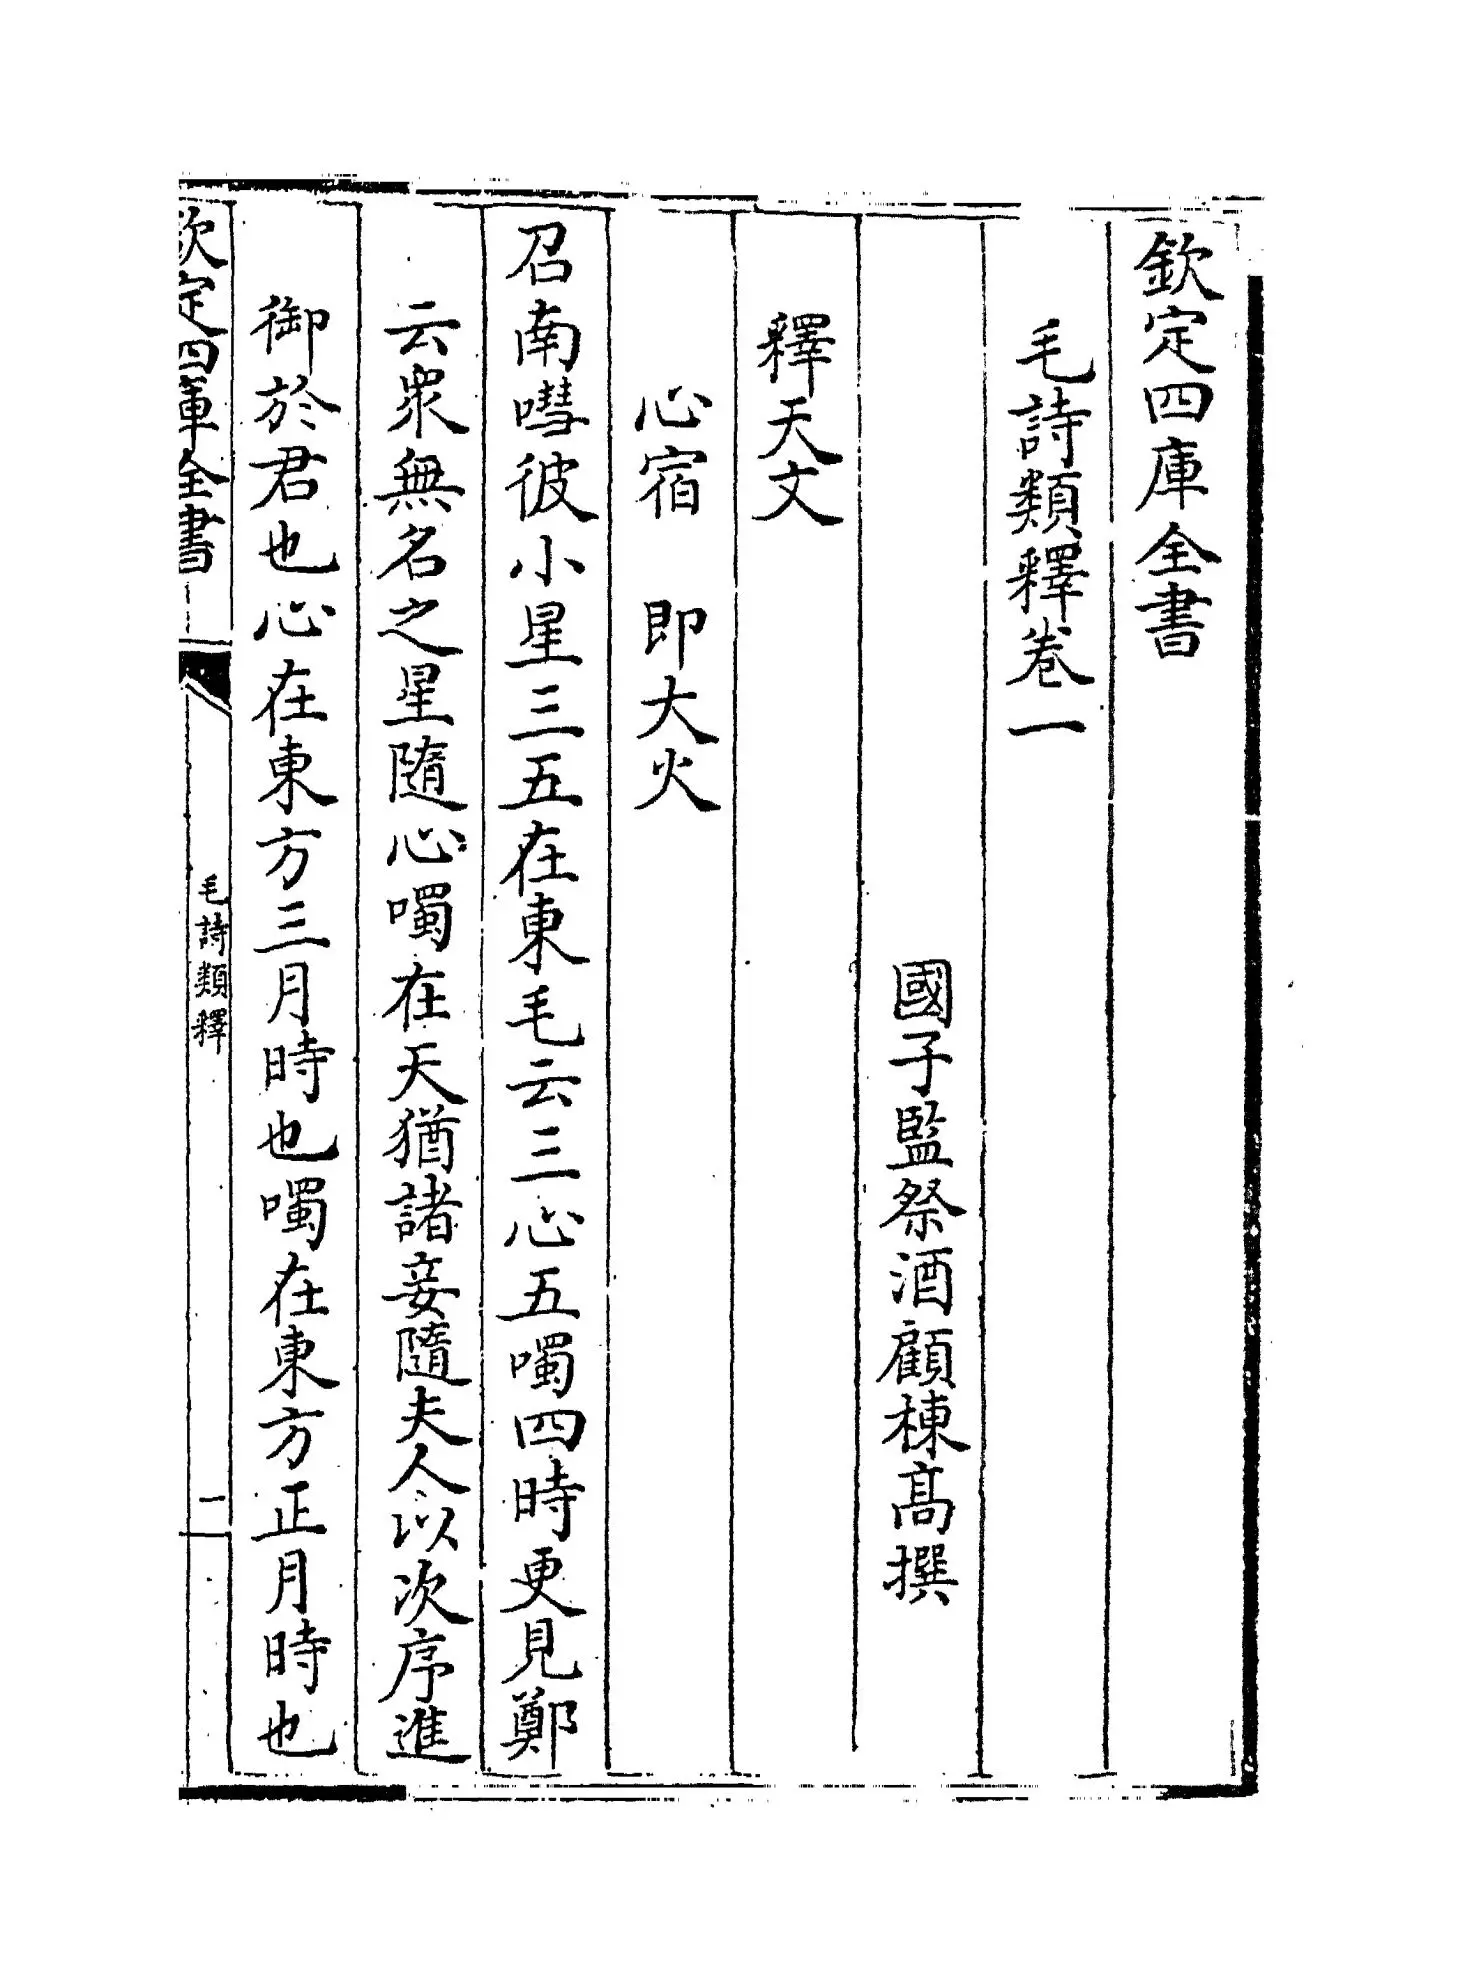 欽定四庫全書
毛詩類釋卷一
國子監祭酒顧棟高撰
釋天文
心宿　即大火
召南嘒彼小星三五在東毛云三心五噣四時更見鄭
云衆無名之星隨心噣在天猶諸妾隨夫人以次序進
御於君也心在東方三月時也噣在東方正月時也
欽定四庫全書
毛詩類釋
一